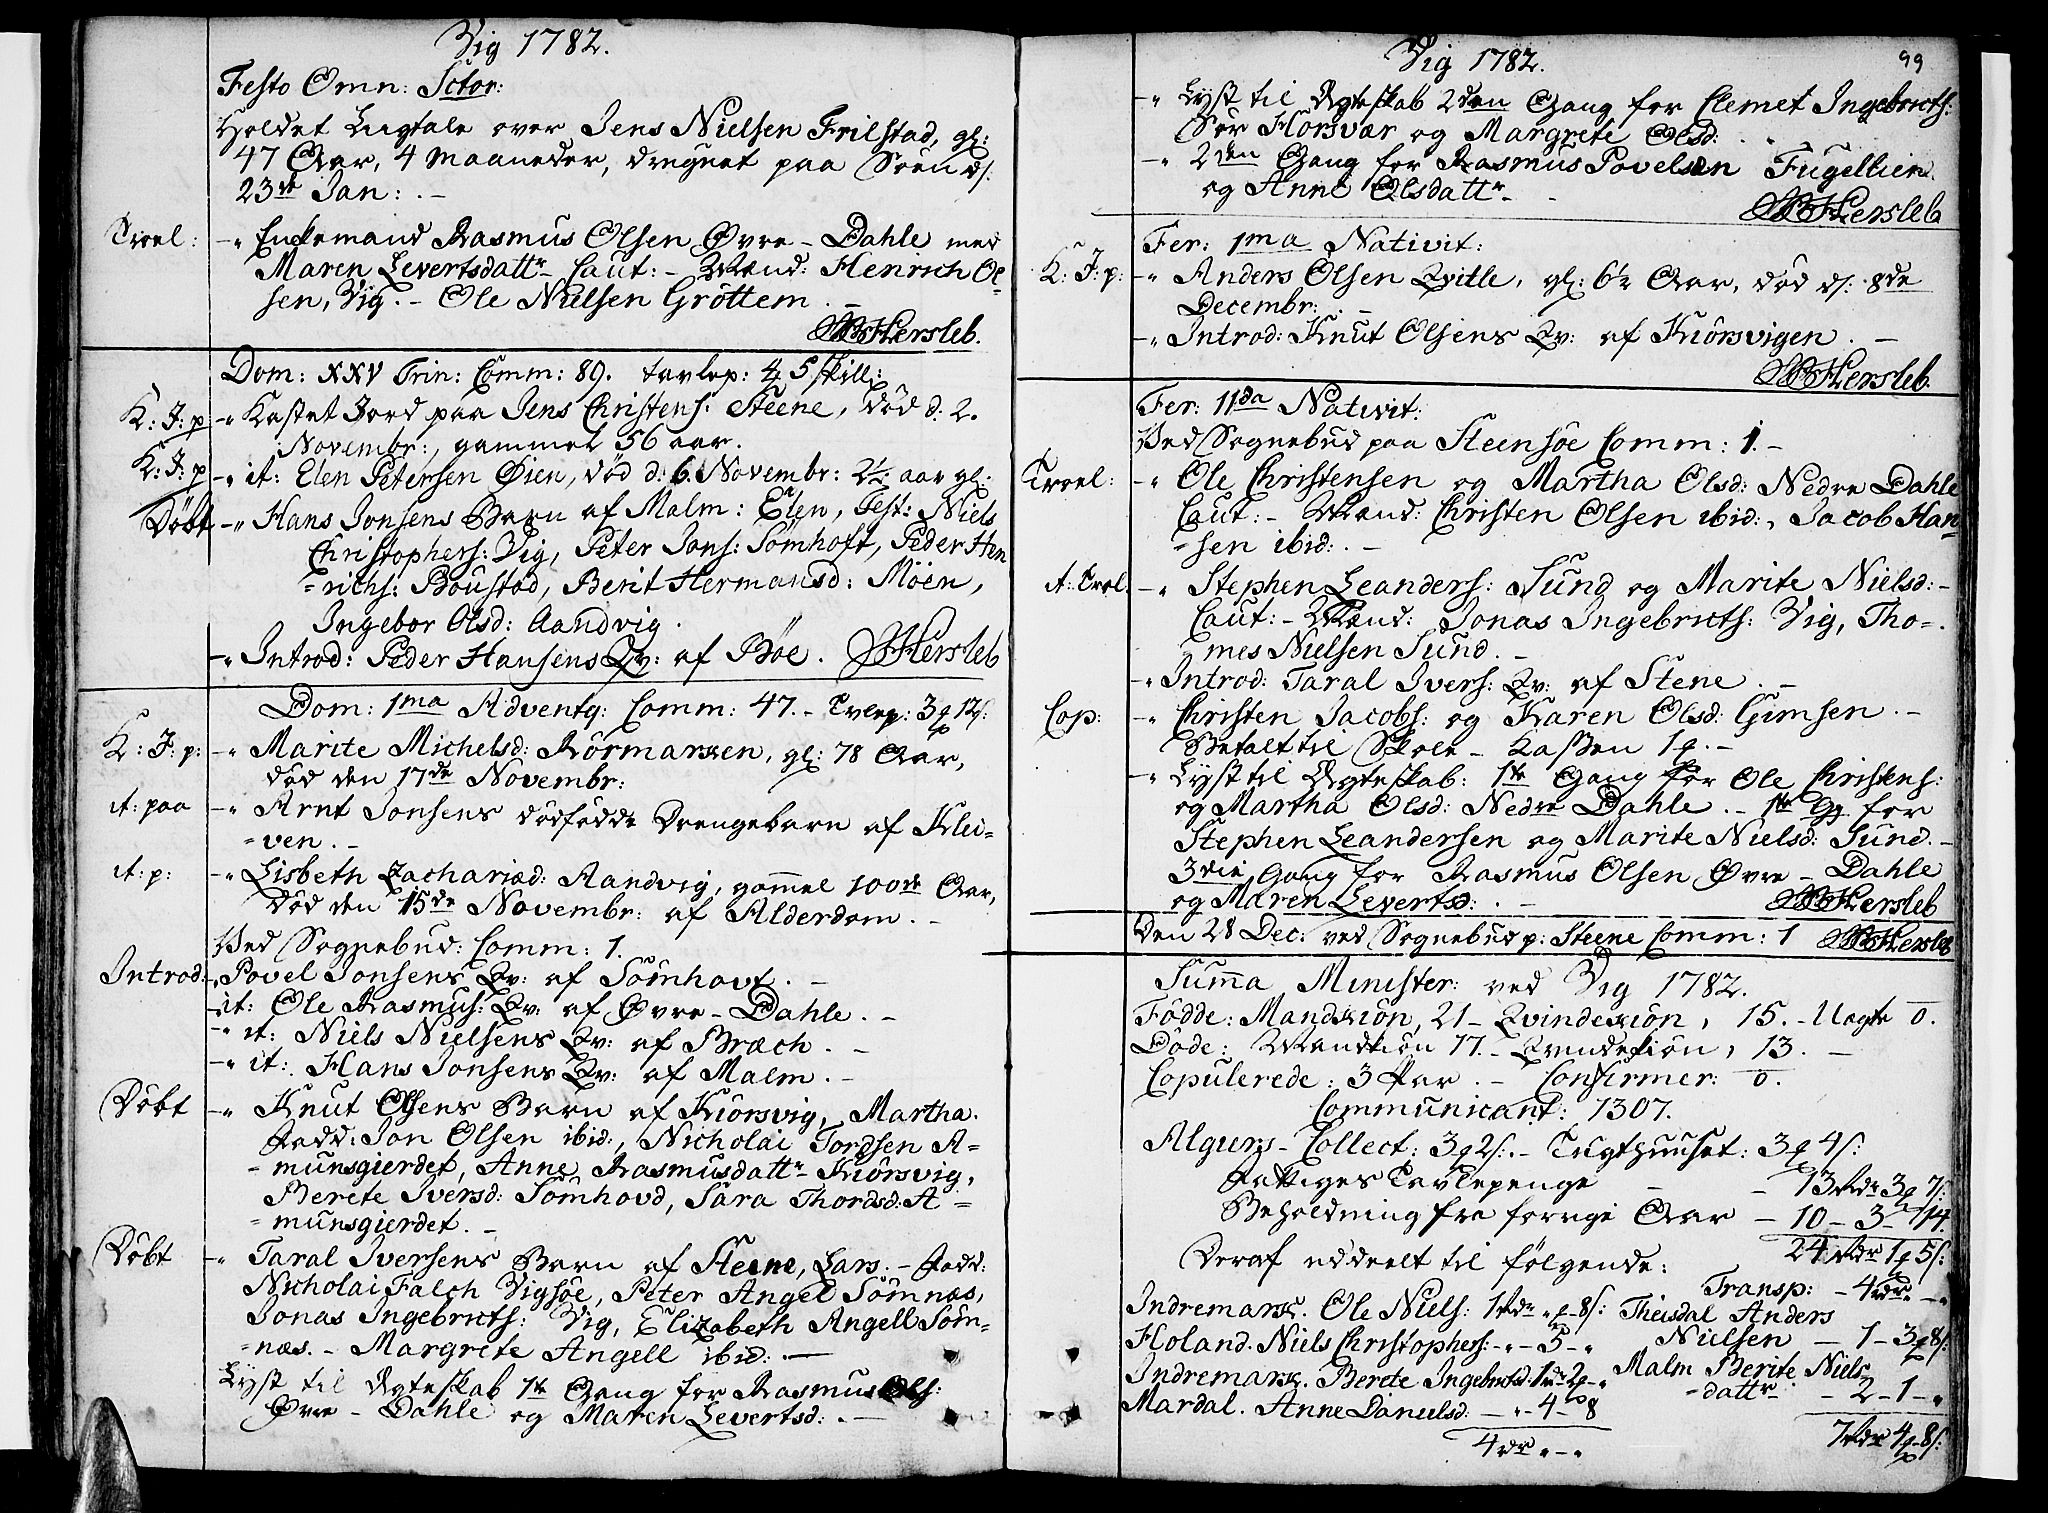 Vig 1782.
Festo Omn: Sctor:
Holdet Liigtale over Jens Nielsen Frilstad, gl:
47 Aar, 4 Maaneder, druknet paa Søen d:
23de Jan: . -
Troel: -" Enkemand Rasmus Olsen Øvre-Dahle med
Maren Levertsdattr - Caut: - Mænd: Henrich Ol-
sen, Vig. - Ole Nielsen Grøttem . -
Hersleb.
Dom: XXV Trin: Comm: 89. tavlep: 4 5 skill:
K: J: p -" Kastet Jord paa Jens Christens: Steene, død d: 2.
Novembr:, gammel 56 aar.
K: J: p -" it: Elen Petersen Øien, død d: 6. Novembr: 2½ aar gl:
Døbt -" Hans Jonsens Barn af Malm: Elen, Test: Niels
Christophers: Vig, Peter Jons: Sømhoft, Peder Hen
-richs: Boustad, Berit Hermansd: Möen,
Ingebor Olsd: Aandvig.
-" Introd: Peder Hansens Qv: af Böe. Hersleb
Dom: 1ma Adventq: Comm: 47. - Tvlep: 3 12s:
K: J: p: -" Marite Michelsd: Rörmarken, gl: 78 Aar,
död den 17de Novembr:
it: paa -" Arnt Jonsens dödfödde Drengebarn af Klei-
-ven. -
it: p: -" Lisbeth Zachariæd: Aandvig, gammel 100de Aar,
död den 15de Novembr: af Alderdom. -
Ved Sognebud: Comm: 1.
Introd: -" Povel Jonsens Qv: af Sömhovt . -
-it: Ole Rasmus: Qv: af Øvre-Dahle. -
-" it: Niels Nielsens Qv: af Bræch . -
-" it: Hans Jonsens Qv: af Malm. -
Döbt -" Knut Olsens Barn af Kiörsvig, Martha.
Fadd: Jon Olsen ibid:, Nicholai Tordsen A-
-munsgierdet, Anne Rasmusdattr Kiörsvig,
Berete Iversd: Sömhovd, Sara Thordsd: A-
-munsgierdet. -
Döbt -" Taral Iversens Barn af Steene, Lars. - Fadd:
Nicholai Falch Vigsöe, Peter Angel Sömnæs,
Jonas Ingebricts: Vig, Elizabeth Angell Söm-
-næs. - Margrete Angell ibid: . -
Lyst til Ægteskab 1te Gang for Rasmus Ols:
Øvre-Dahle og Maren Levertsd: . -
Vig 1782. 99
-" Lyst til Ægteskab 2den Gang for Clemet Ingebricts:
Sör Horsvær og Margrete Olsd:
-" 2den Gang for Rasmus Povelsen Fugeltien
og Anne Olsdattr -
Hersleb
Fer: 1ma Nativit:
K: J: p: -" Anders Olsen Qvitle, gl: 6½ Aar, död d: 8de
Decembr: . -
-" Introd: Knut Olsens Qv: af Kiörsvigen . -
Hersleb.
Fer: 11da Nativit:
Ved Sognebud paa Steensöe Comm: 1. -
Troel: -" Ole Christensen og Martha Olsd: Nedre Dahle
Caut: - Mænd: Christen Olsen ibid:, Jacob Han-
-sen ibid: . -
it: Trol. -" Stephen Leanders: Sund og Marite Nielsd: -
Caut: - Mænd: Jonas Ingebricts: Vig, Tho-
-mes Nielsen Sund. -
-" Introd: Taral Ivers: Qv: af Stene . -
Cop: -" Christen Jacobs: og Karen Olsd: Gimsen. -
Betalt til Skole-Kassen 1. -
-" Lyst til Ægteskab: 1te Gang for Ole Christens:
og Martha Olsd: Nedre Dahle. - 1te Gg for
Stephen Leandersen og Marite Nielsd: Sund. -
3die Gang for Rasmus Olsen Øvre-Dahle
og Maren Levertsd: . - Hersleb
Den 28 Dec: ved Sognebud p: Steene Comm: 1 Hersleb
Summa Minister: ved Vig 1782.
Födde: Mandkiön, 21 - Qvindekiön, 15. - Uægte 0.
Döde: Mandkiön 17. - Qvindekiön, 13. -
Copulerede: 3 Par. - Confirmer: 0.
Communicant: 1307.
Algiers-Collect: 3 2s: - Tugthuuset: 3 4s:
Fattiges Tavlepenge - - 13 rdr 3 7s:
Beholdning fra forrige Aar - 10 - 3 - 14.
24 rdr 1 5s:
Deraf uddeelt til følgende:
Transp: - 4 rdr. - "
Indremark. Ole Niels: 1 rdr " - 8s: Theisdal Anders
Holand. Niels Christophers: - " - 5 - " Nielsen - 1 - 3 8s:
Indremark. Berete Ingebrictsd: 1 rdr 2 - " Malm Berite Niels
Mardal. Anne Danielsd: - " - 4 - 8 -dattr - 2 - 1 - "
4 rdr " - " 7 rdr 4 - 8s: